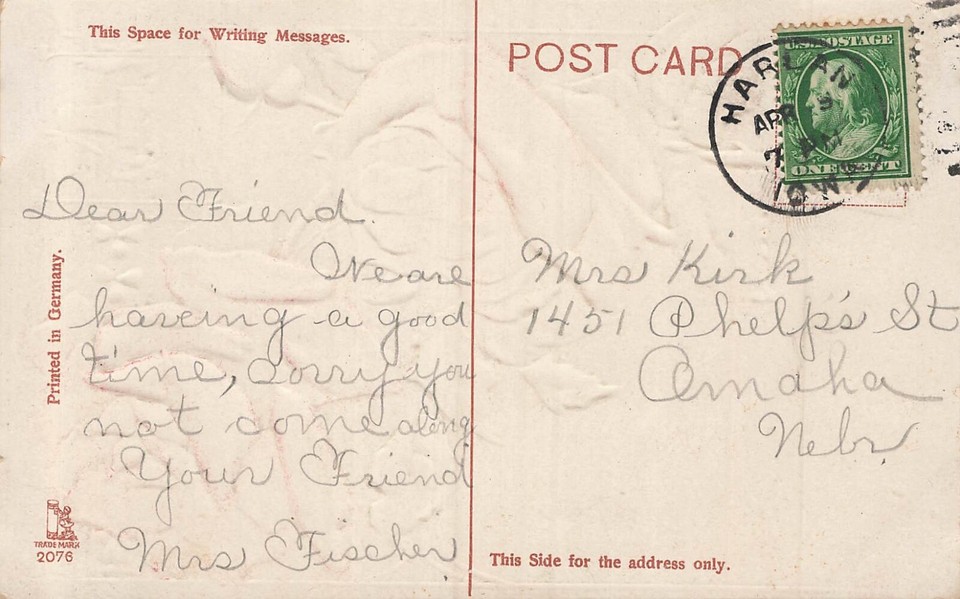 This Space for Writing Messages.
Dear Friend.
We are
haveing a good
time, sorry you
not come along
Your Friend
Mrs Fischer
Printed in Germany.
TRADE MARK
2076
POST CARD
U.S. POSTAGE
ONE CENT
HARLAN
APR 9
7 AM
IOWA
Mrs Kirk
1451 Phelp's St
Omaha
Nebr
This Side for the address only.